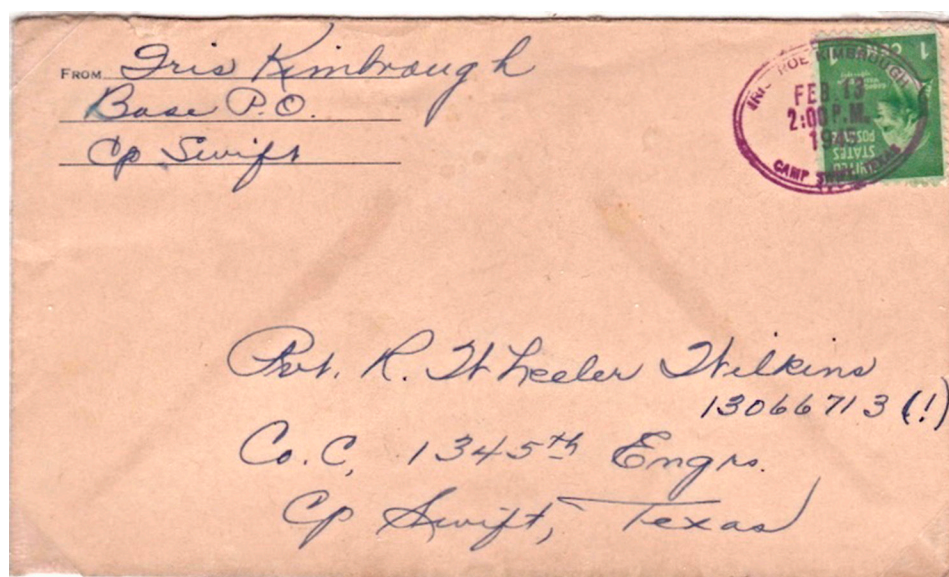 FROM Iris Kimbrough
Base P.O.
Cp Swift
ROE KIMBROUGH
FEB 13
2:00 P.M.
CAMP TEXAS
1
UNITED
STATES
Pvt. R. Wheeler Wilkins
13066713 (!)
Co. C, 1345th Engrs.
Cp Swift, Texas